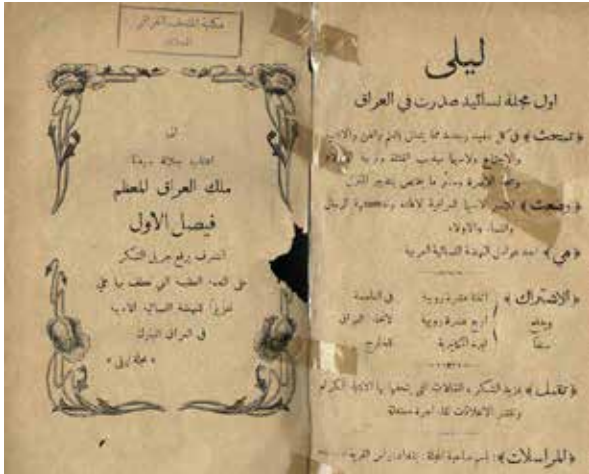 ليلى
اول مجلة نسائية صدرت في العراق
﴿ تبحث ﴾ في كل مفيد وجديد مما يتعلق بالعلم والفن والادب
والاجتماع ولاسيما تهذيب الفتاة وتربية الاولاد
وصحة الاسرة وسائر ما يختص بتدبير المنزل
﴿ وضعت ﴾
والنساء والاولاد
﴿ هي ﴾ احد عوامل النهضة النسائية العربية
﴿ الاشتراك ﴾ اثنتا عشرة روبية في العاصمة
ويدفع اربع عشرة روبية لانحاء العراق
سلفاً ليرة انكليزية للخارج
﴿ تقبل ﴾ بمزيد الشكر المقالات التي يتحفها بها الادباء الكرام
وتنشر الاعلانات لقاء اجرة معتدلة
﴿ المراسلات ﴾ : باسم صاحبة المجلة : بغداد رأس القرية
مكتبة المتحف العراقي
الى
اعتاب جلالة سيدنا
ملك العراق المعظم
فيصل الاول
اتشرف برفع جزيل الشكر
على المنحة العظيمة التي عطف بها علي
تعزيزاً للنهضة النسائية الادبية
في العراق المبارك
« مجلة ليلى »